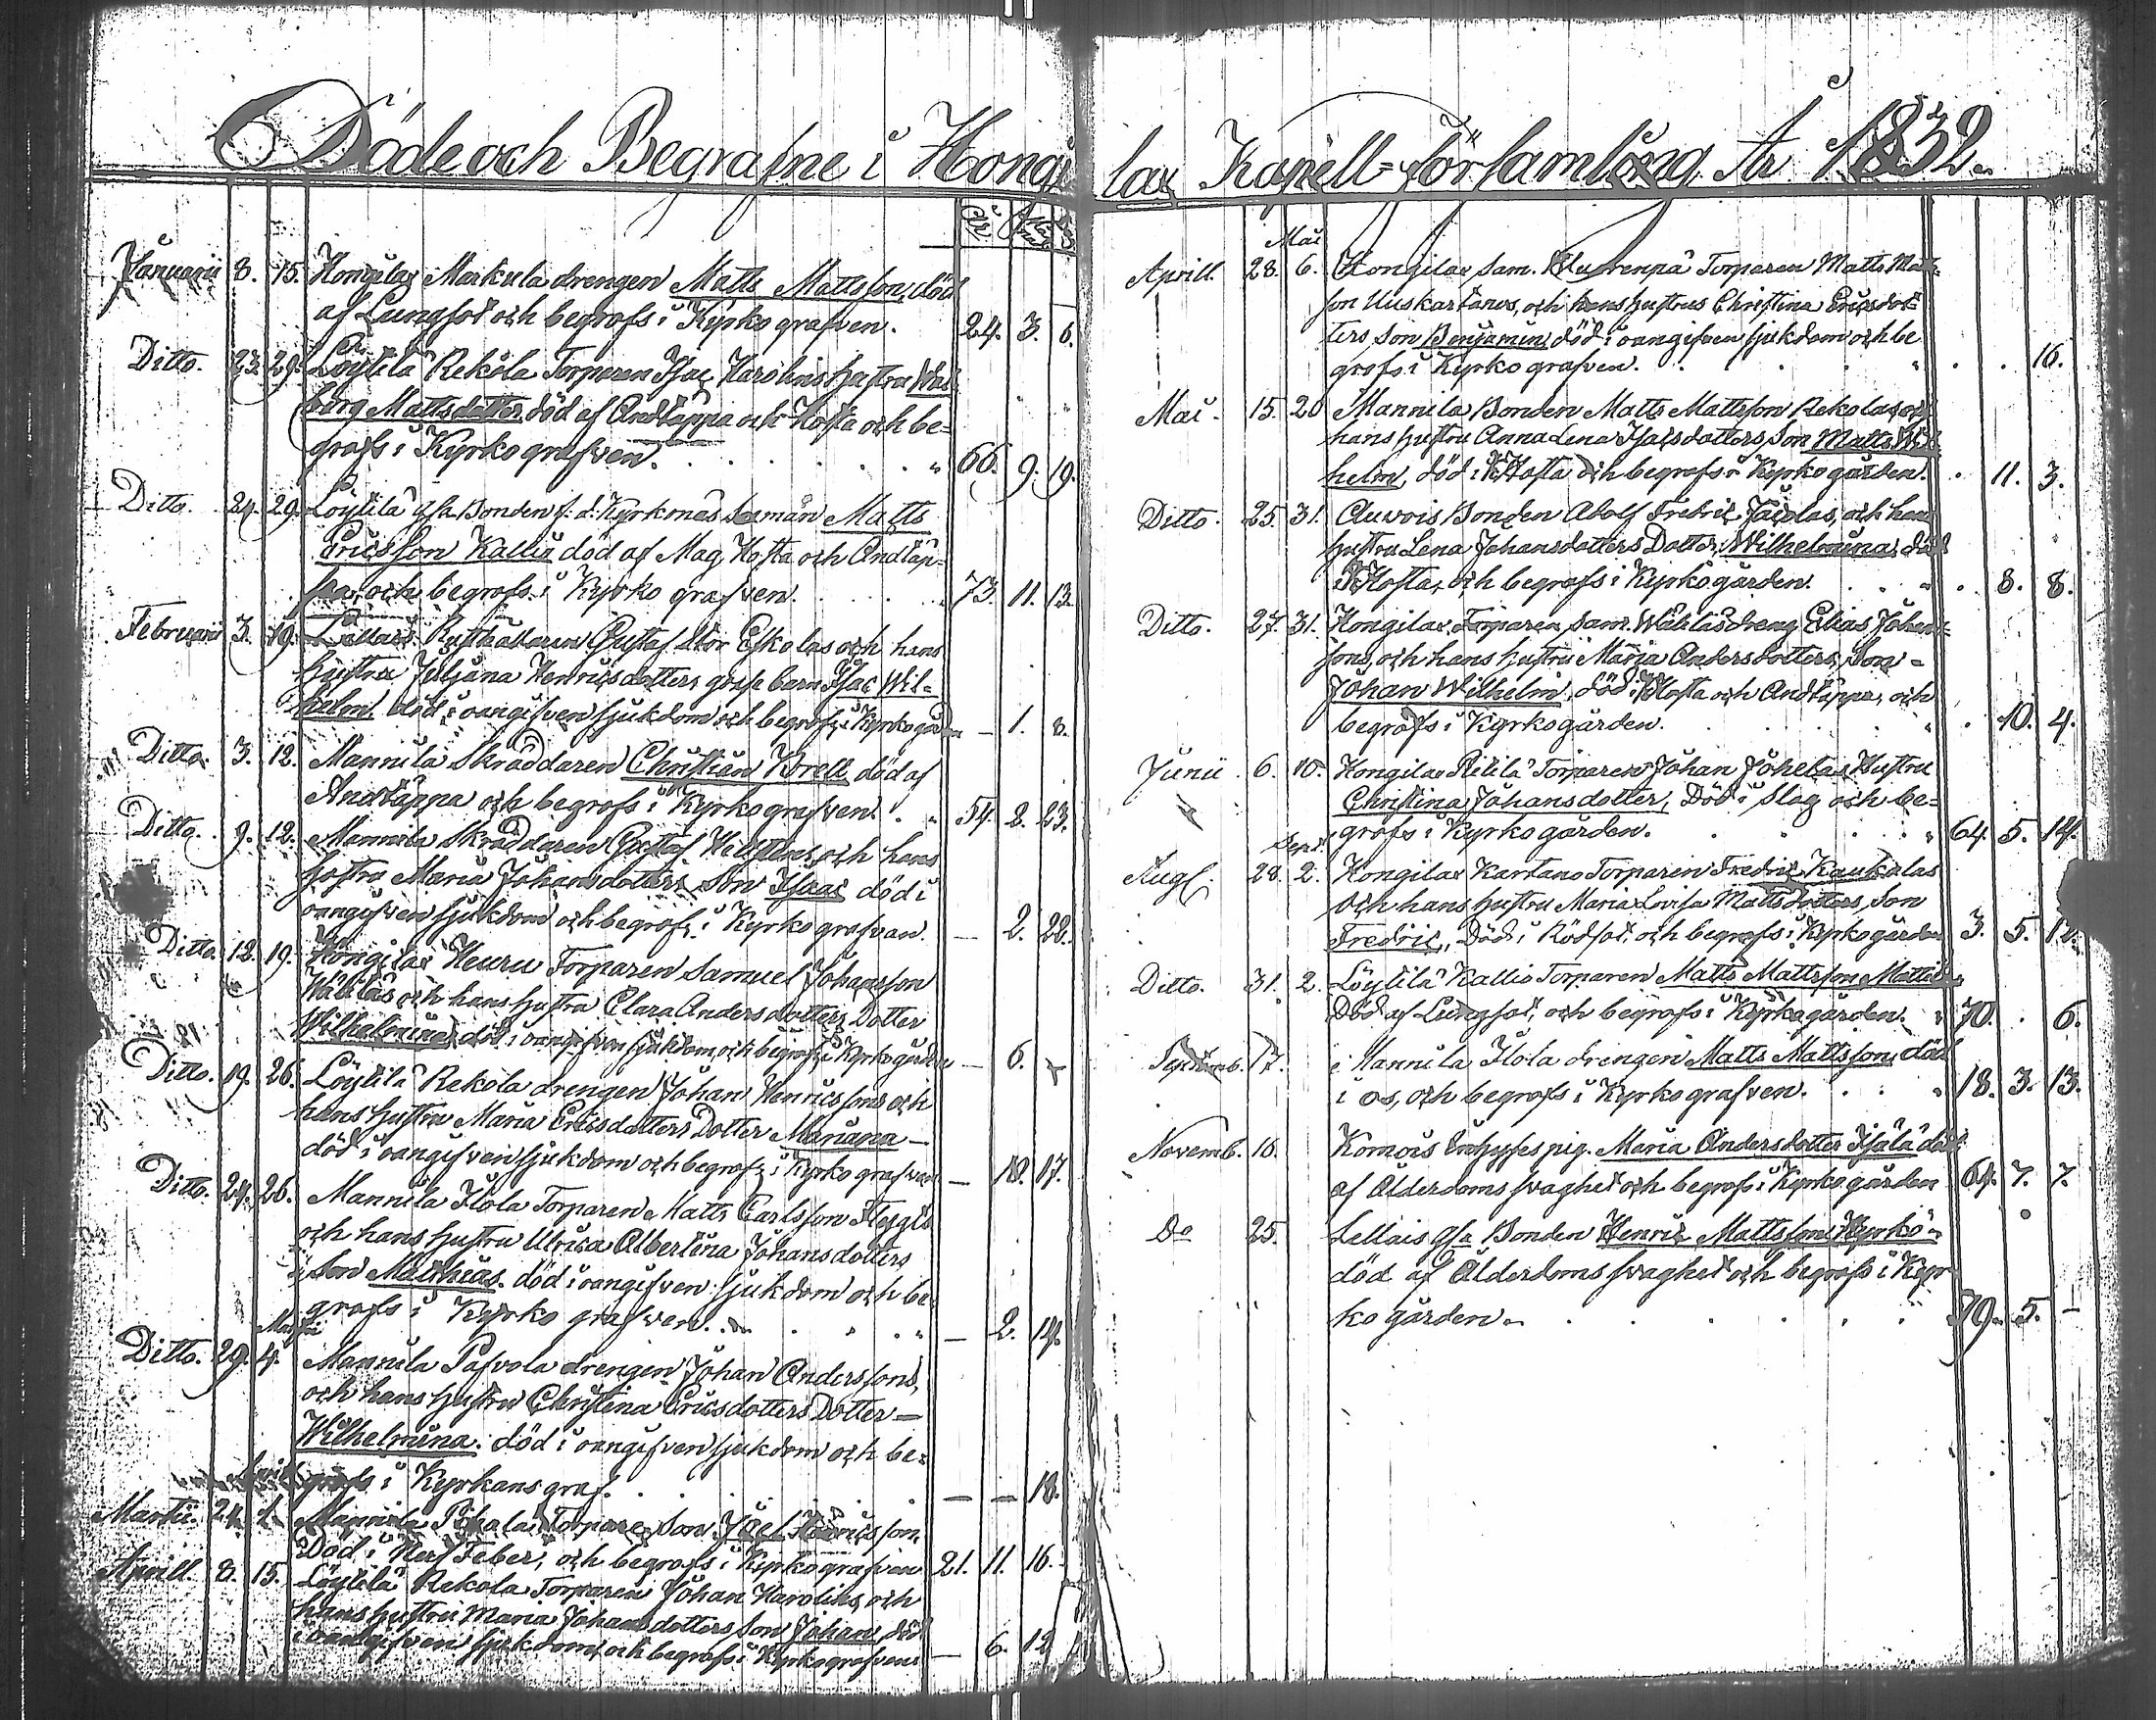 Döde och Begrafne i Hongi
År Mån
Januarii 8. 15. Hongilax Markula drengen Matts Mattsson, död
af Lungsot och begrofs i Kyrko grafven. 24. 3. 6.
Ditto. 23. 29. Löytilä Rekola Torparen Isac Karolins hustru Wal
borg Mattsdotter, död af Andtäppa och Hosta och be=
grofs i Kyrko grafven. 66. 9. 19.
Ditto. 24. 29. Löytilä Bonden f. d. Kyrkones Matts
Ericsson Kallis död af Mag Hosta och Andtäp=
pa, och begrofs i Kyrko grafven. 73. 11. 13.
Februarii 3. 19. Rusthållaren Gustaf Stor Eskolas och hans
hustru Juliana Henricsdotters barn Isac Wil=
helm, död i oangifven sjukdom och begrofs i Kyrkogården — 1. 8.
Ditto. 3. 12. Mannila Skräddaren Christian Krell, död af
Andtäppa och begrofs i Kyrko grafven. 54. 2. 23.
Ditto. 9. 12. Mannila Skräddaren Gustaf och hans
hustru Maria Johansdotters Son Isaac död i
oangifven sjukdom och begrofs i Kyrko grafvan. — 2. 22.
Ditto 12. 19. Hongilax Heuru Torparen Samuel Johansson
Wälilas och hans hustru Clara Andersdotters Dotter
Wilhelmina, död i oangifven sjukdom och begrofs i Kyrkogården — 6. 7
Ditto. 19. 26. Löytilä Rekola drengen Johan Henricssons och
hans hustru Maria Ericsdotters Dotter Mariana —
död i oangifven sjukdom och begrofs i Kyrko grafven — 10. 17.
Ditto. 24. 26. Mannila Ilola Torparen Matts Carlsson
och hans hustru Ulrica Albertina Johansdotters
Son Matthias. död i oangifven sjukdom och be
grofs i Kyrko grafven. — 2. 14.
Martii
Ditto. 29. 4. Mannila Pasvola drengen Johan Anderssons,
och hans hustru Christina Ericsdotters Dotter —
Wilhelmina. död i oangifven sjukdom och be=
April grofs i Kyrkans graf. — — 18.
Martii. 24. 1. Mannila Pihala Torpare Son Joel Henricsson,
Död i Nerf Feber, och begrofs i Kyrko grafven 21. 11. 16.
Aprill 8. 15. Löytilä Rekola Torparen Johan Karolins, och
hans hustru Maria Johansdotters son Johan, död
i oangifven sjukdom, och begrofs i Kyrkografven — 6. 12
lax Kapell=Församling År 1832.
Maii
Aprill. 28. 6. Hongilax sam. Torparen Matts Matts
son Uuskartanos, och hans hustrus Christina Ericsdot=
ters, son Benjamin, död i oangifven sjukdom och be
grofs i Kyrko grafven. 16.
Maii. 15. 20 Mannila Bonden Matts Mattsson Rekolas, och
hans hustru Anna Lena Isacsdotters Son Matts Wil
helm, död i Kikhosta och begrofs i Kyrko gården. 11. 3.
Ditto. 25. 31. Auvois Bonden Adolf Fredric Jaakolas, och hans
hustru Lena Johansdotters Dotter, Wilhelmina, död
i Kikhosta, och begrofs i Kyrko gården. 8. 8.
Ditto. 27. 31. Hongilax Torparen sam. Wälilä dreng Elias Johans=
sons, och hans hustru Maria Andersdotters, Son =
Johan Wilhelm, död i Kikhosta och Andtäppa, och
begrofs i Kyrko gården. 10. 4.
Junii. 6. 10. Hongilax Pitilä Torparen Johan Johelas, Hustru
Christina Johansdotter, Död i Slag och be=
grofs i Kyrko gården. 64. 5. 14.
Sept.
Augs. 28. 2. Hongilax Kartano Torparen Fredric Kaukalas
Och hans hustru Maria Lovisa Mattsdotters, Son
Fredric, Död i Rödsot, och begrofs i Kyrko gården 3. 5. 12.
Ditto. 31. 2. Löytilä Kallio Torparen Matts Mattsson Mattila
Död af Lungsot, och begrofs i Kyrko gården. 70. . 6.
Septemb. 17. Mannila Ilola drengen Matts Mattsson, död
i os, och begrofs i Kyrko grafven. 18. 3. 13.
Novemb. 16. Komois Inhyses pig. Maria Andersdotter Isälä död
af Ålderdoms svaghet och begrofs i Kyrko gården 64. 7. 7.
Do 25. Lellais Bonden Henric Mattsson Kyrkö=
död af Ålderdoms svaghet och begrofs i Kyr
ko gården. 79. 5. —